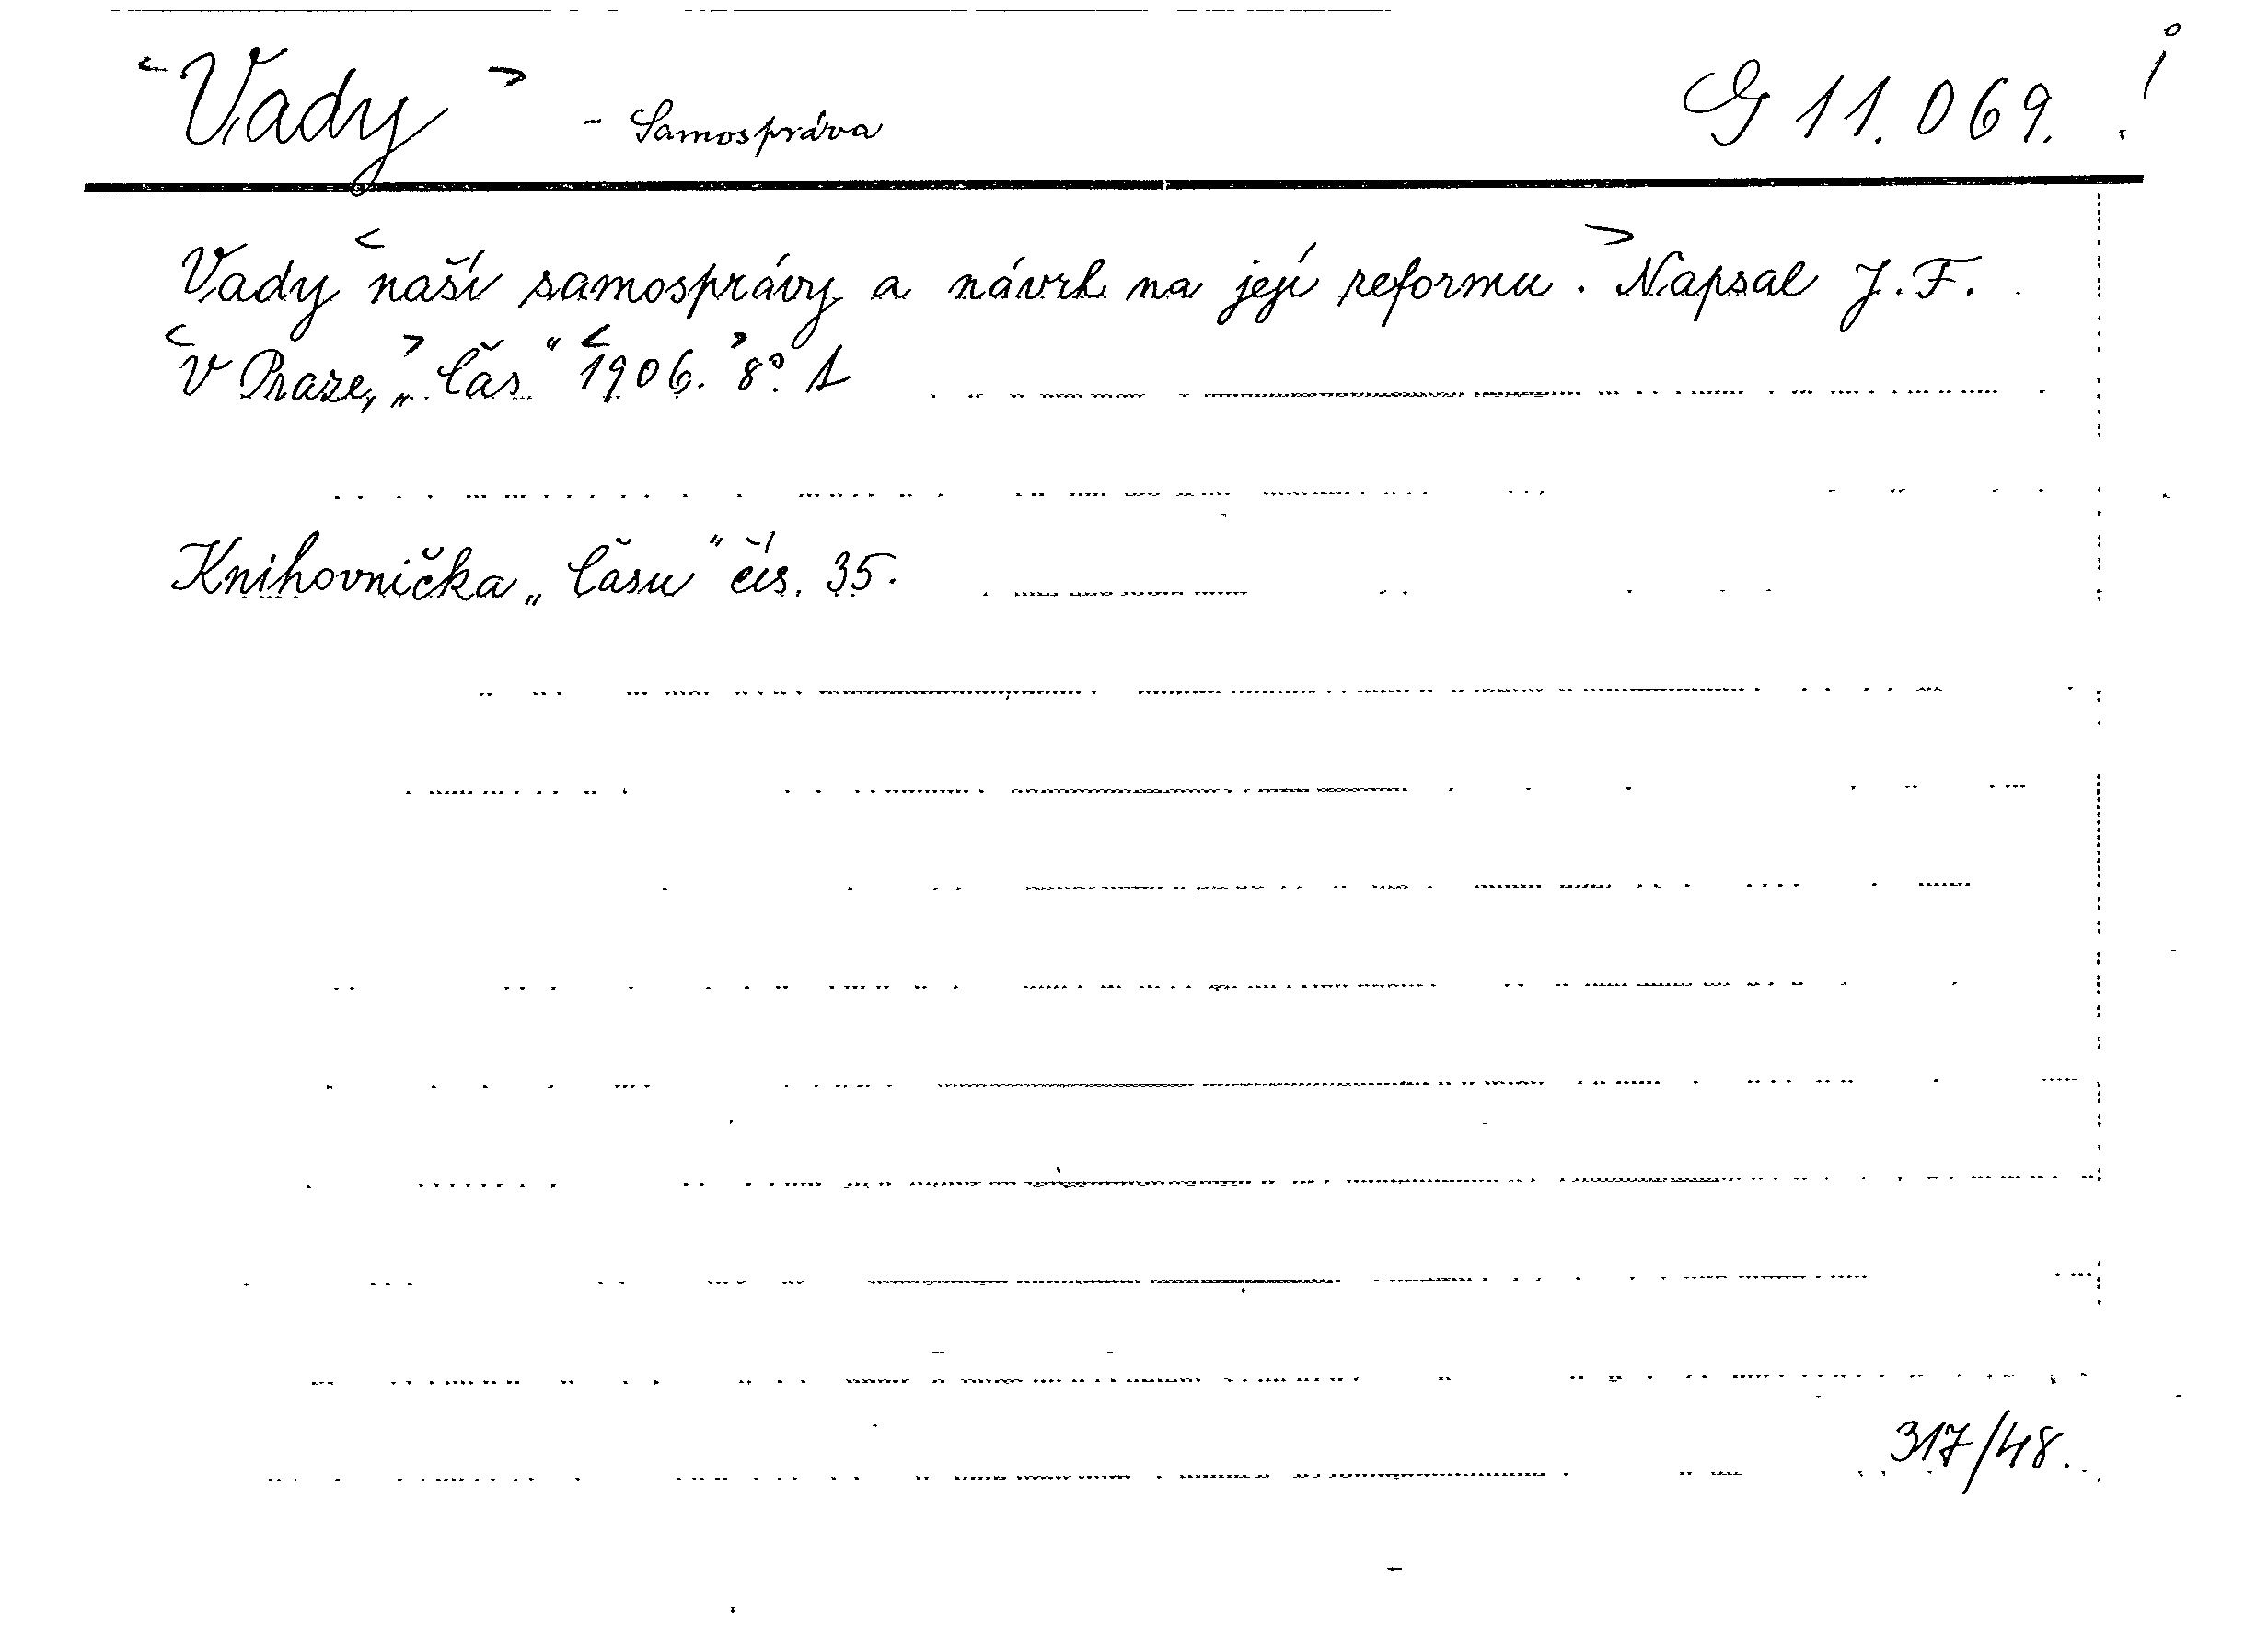 <Vady> - Samospráva G 11.069. !
Vady <naší samosprávy a návrh na její reformu.> Napsal J. F.
<V Praze,> „Čas“ <1906.> 8°. 1
Knihovnička „Času“ čís. 35.
317/48.